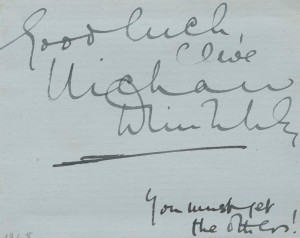 Good luck,
Clive
Michael
You must get
the others!